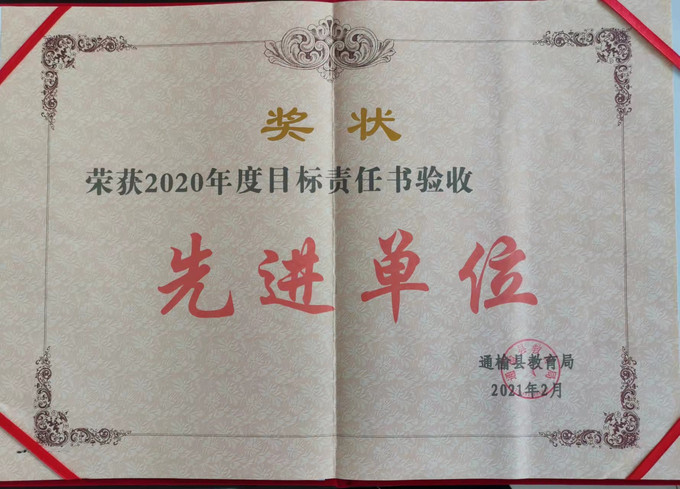 奖状
荣获2020年度目标责任书验收
先进单位
通榆县教育局
2021年2月